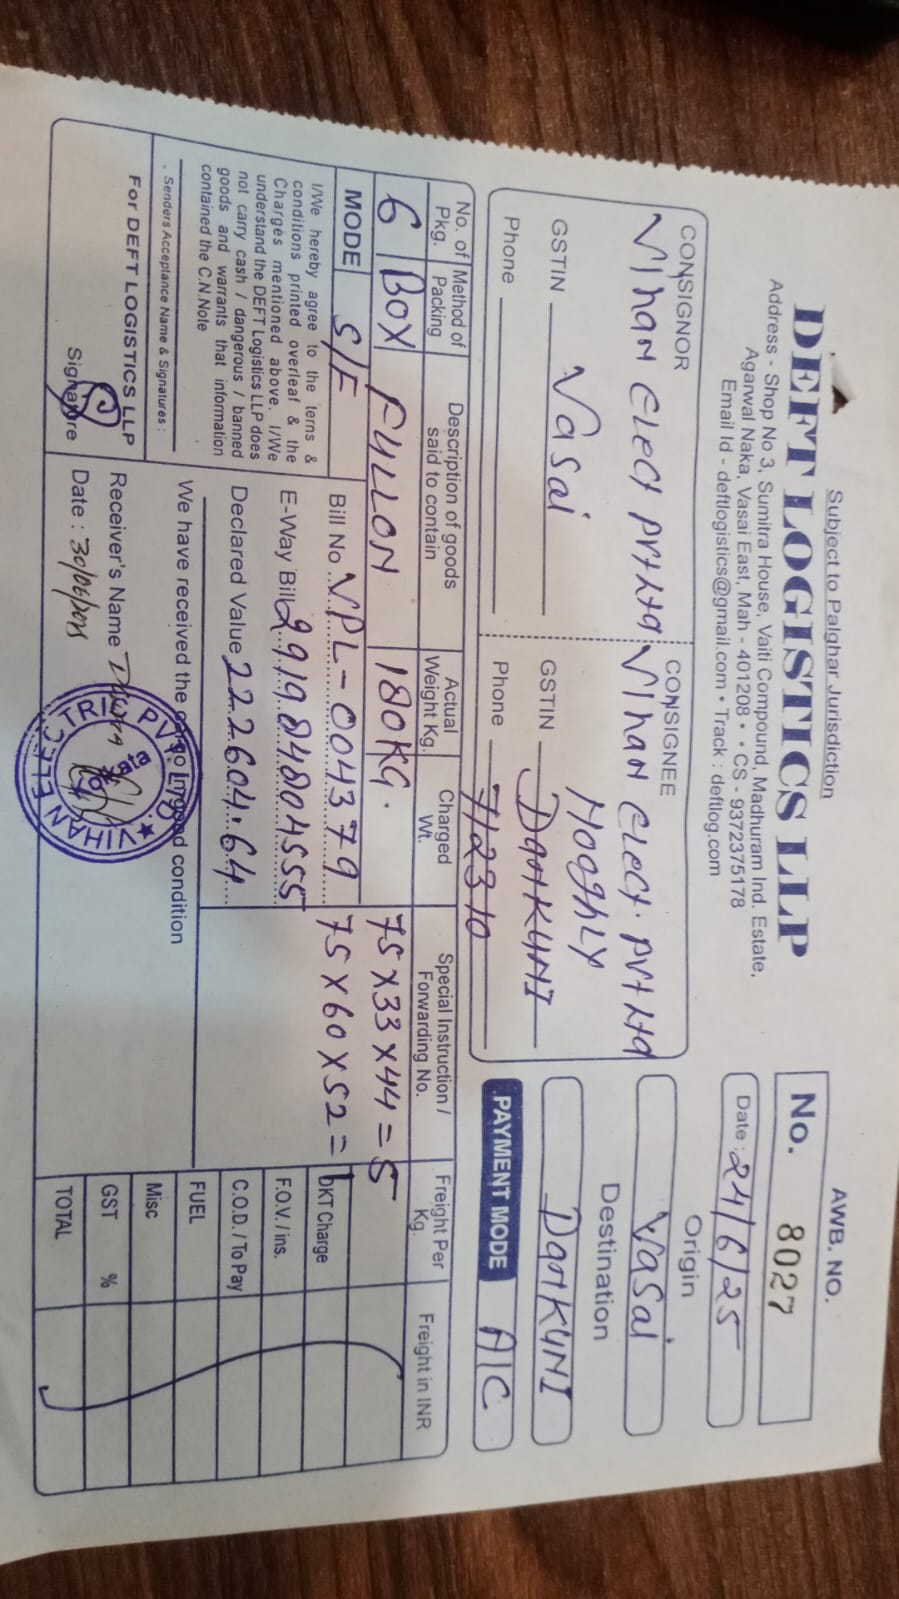 Subject to Palghar Jurisdiction
DEFT LOGISTICS LLP
Address - Shop No 3, Sumitra House, Vaiti Compound, Madhuram Ind. Estate,
Agarwal Naka, Vasai East, Mah - 401208 • • CS - 9372375178
Email Id - deftlogistics@gmail.com • Track : deftlog.com
AWB. NO.
No. 8027
Date : 24/6/25
Origin
Vasai
Destination
DANKUNI
PAYMENT MODE A/C
CONSIGNOR
Vihan Elect Pvt Ltd
GSTIN Vasai
Phone
CONSIGNEE
Vihan Elect. Pvt Ltd
HOOGHLY
GSTIN DANKUNI
Phone 712310
No. of Pkg. Method of Packing Description of goods said to contain Actual Weight Kg. Charged Wt. Special Instruction / Forwarding No. Freight Per Kg. Freight in INR
6 BOX FULLON 180KG. 75 X 33 X 44 = 5
75 X 60 X 52 = 1
MODE S/F
Bill No. VPL-004379
E-Way Bill 291984804555
Declared Value 222604.64
DKT Charge
F.O.V. / ins.
C.O.D. / To Pay
FUEL
Misc
GST %
TOTAL
I/We hereby agree to the terns &
conditions printed overleaf & the
Charges mentioned above. I/We
understand the DEFT Logistics LLP does
not carry cash / dangerous / banned
goods and warrants that information
contained the C.N.Note
Senders Acceptance Name & Signatures :
For DEFT LOGISTICS LLP
Signature
We have received the cargo In good condition
Receiver's Name
Date : 30/06/2025
VIHAN ELECTRIC PVT LTD
Kolkata